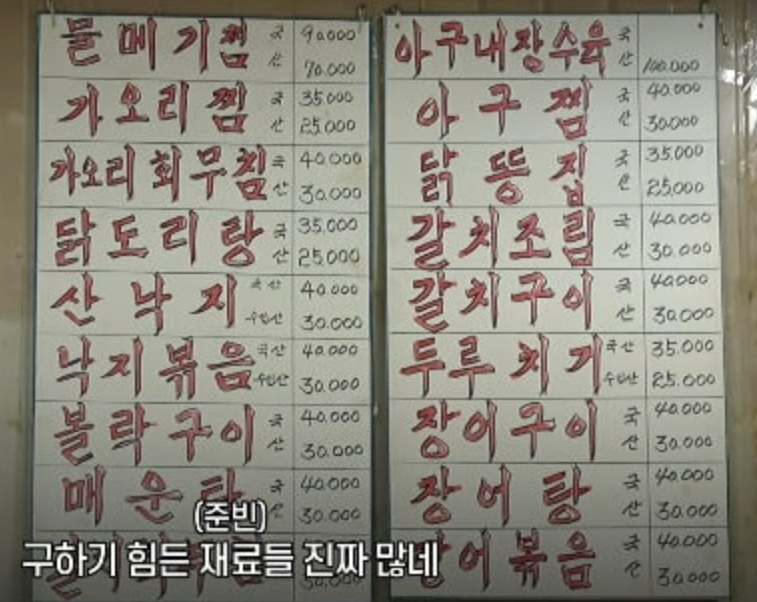 물메기찜 국산 90.000 70.000
가오리찜 국산 35.000 25.000
가오리회무침 국산 40.000 30.000
닭도리탕 국산 35.000 25.000
산낙지 국산 40.000 수입산 30.000
낙지볶음 국산 40.000 수입산 30.000
볼락구이 국산 40.000 30.000
매운탕 국산 40.000 30.000
아구내장수육 국산 100.000
아구찜 국산 40.000 30.000
닭똥집 국산 35.000 25.000
갈치조림 국산 40.000 30.000
갈치구이 국산 40.000 30.000
두루치기 국산 35.000 수입산 25.000
장어구이 국산 40.000 30.000
장어탕 국산 40.000 30.000
장어볶음 국산 40.000 30.000
(준빈)
구하기 힘든 재료들 진짜 많네